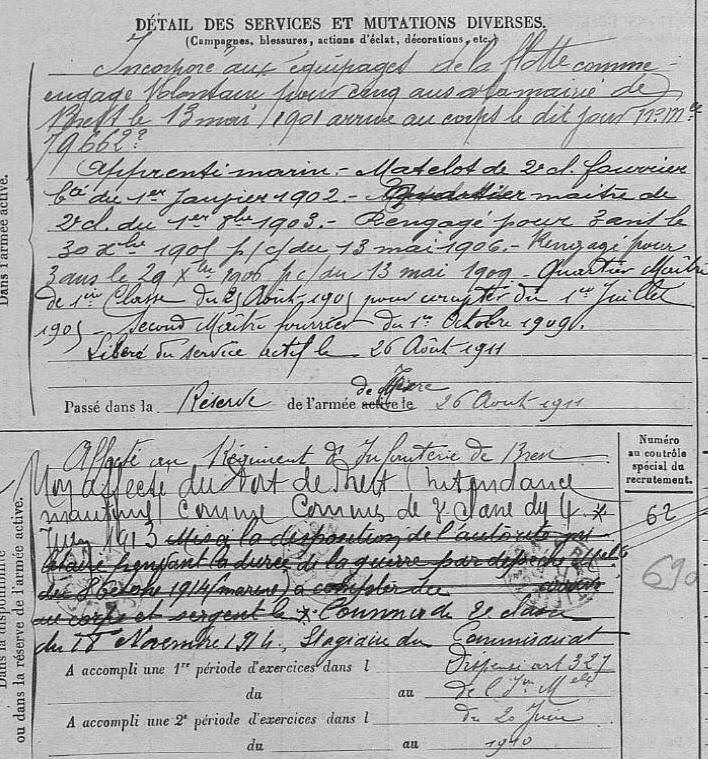 DÉTAIL DES SERVICES ET MUTATIONS DIVERSES.
(Campagnes, blessures, actions d'éclat, décorations, etc.)
Incorporé aux équipages de la flotte comme
engagé volontaire pour cinq ans à la mairie de
Brest le 13 mai 1901 arrivé au corps le dit jour
79662²
Apprenti marin. - Matelot de 2e cl. fourrier
du 1er Janvier 1902. - maitre de
2e cl. du 1er 8bre 1903. - Rengagé pour 3 ans le
30 Xbre 1905 p/c/du 13 mai 1906. - Rengagé pour
3 ans le 29 Xbre 1906 p c/du 13 mai 1909. - Quartier Maître
de 1ère Classe du Août 1905 pour compter du 1er Juillet
1905 - Second Maître fourrier du 1er Octobre 1909.
Libéré du service actif le 26 Août 1911
Passé dans la Réserve de l'armée active le de Mer 26 Août 1911
Dans l'armée active.
Affecté au Régiment d'Infanterie de
Non affecté du Port de Brest (Intendance
maritime) comme Commis de 2e classe du 4 *
Juin 1913 Mis à la disposition de l'autorité
pendant la durée de la guerre par dépêche
du 8 Octobre 1914 (marine) à compter du
au corps et sergent le * Commis de 2e classe
du 18 Novembre 1914, Stagiaire du Commissariat
Numéro
au contrôle
spécial du
recrutement.
62
690
A accompli une 1re période d'exercices dans l Dispensé art 327
du au de l'Ion Mlle
A accompli une 2e période d'exercices dans l du 20 Juin
du au 1910
Dans la disponibilité
ou dans la réserve de l'armée active.